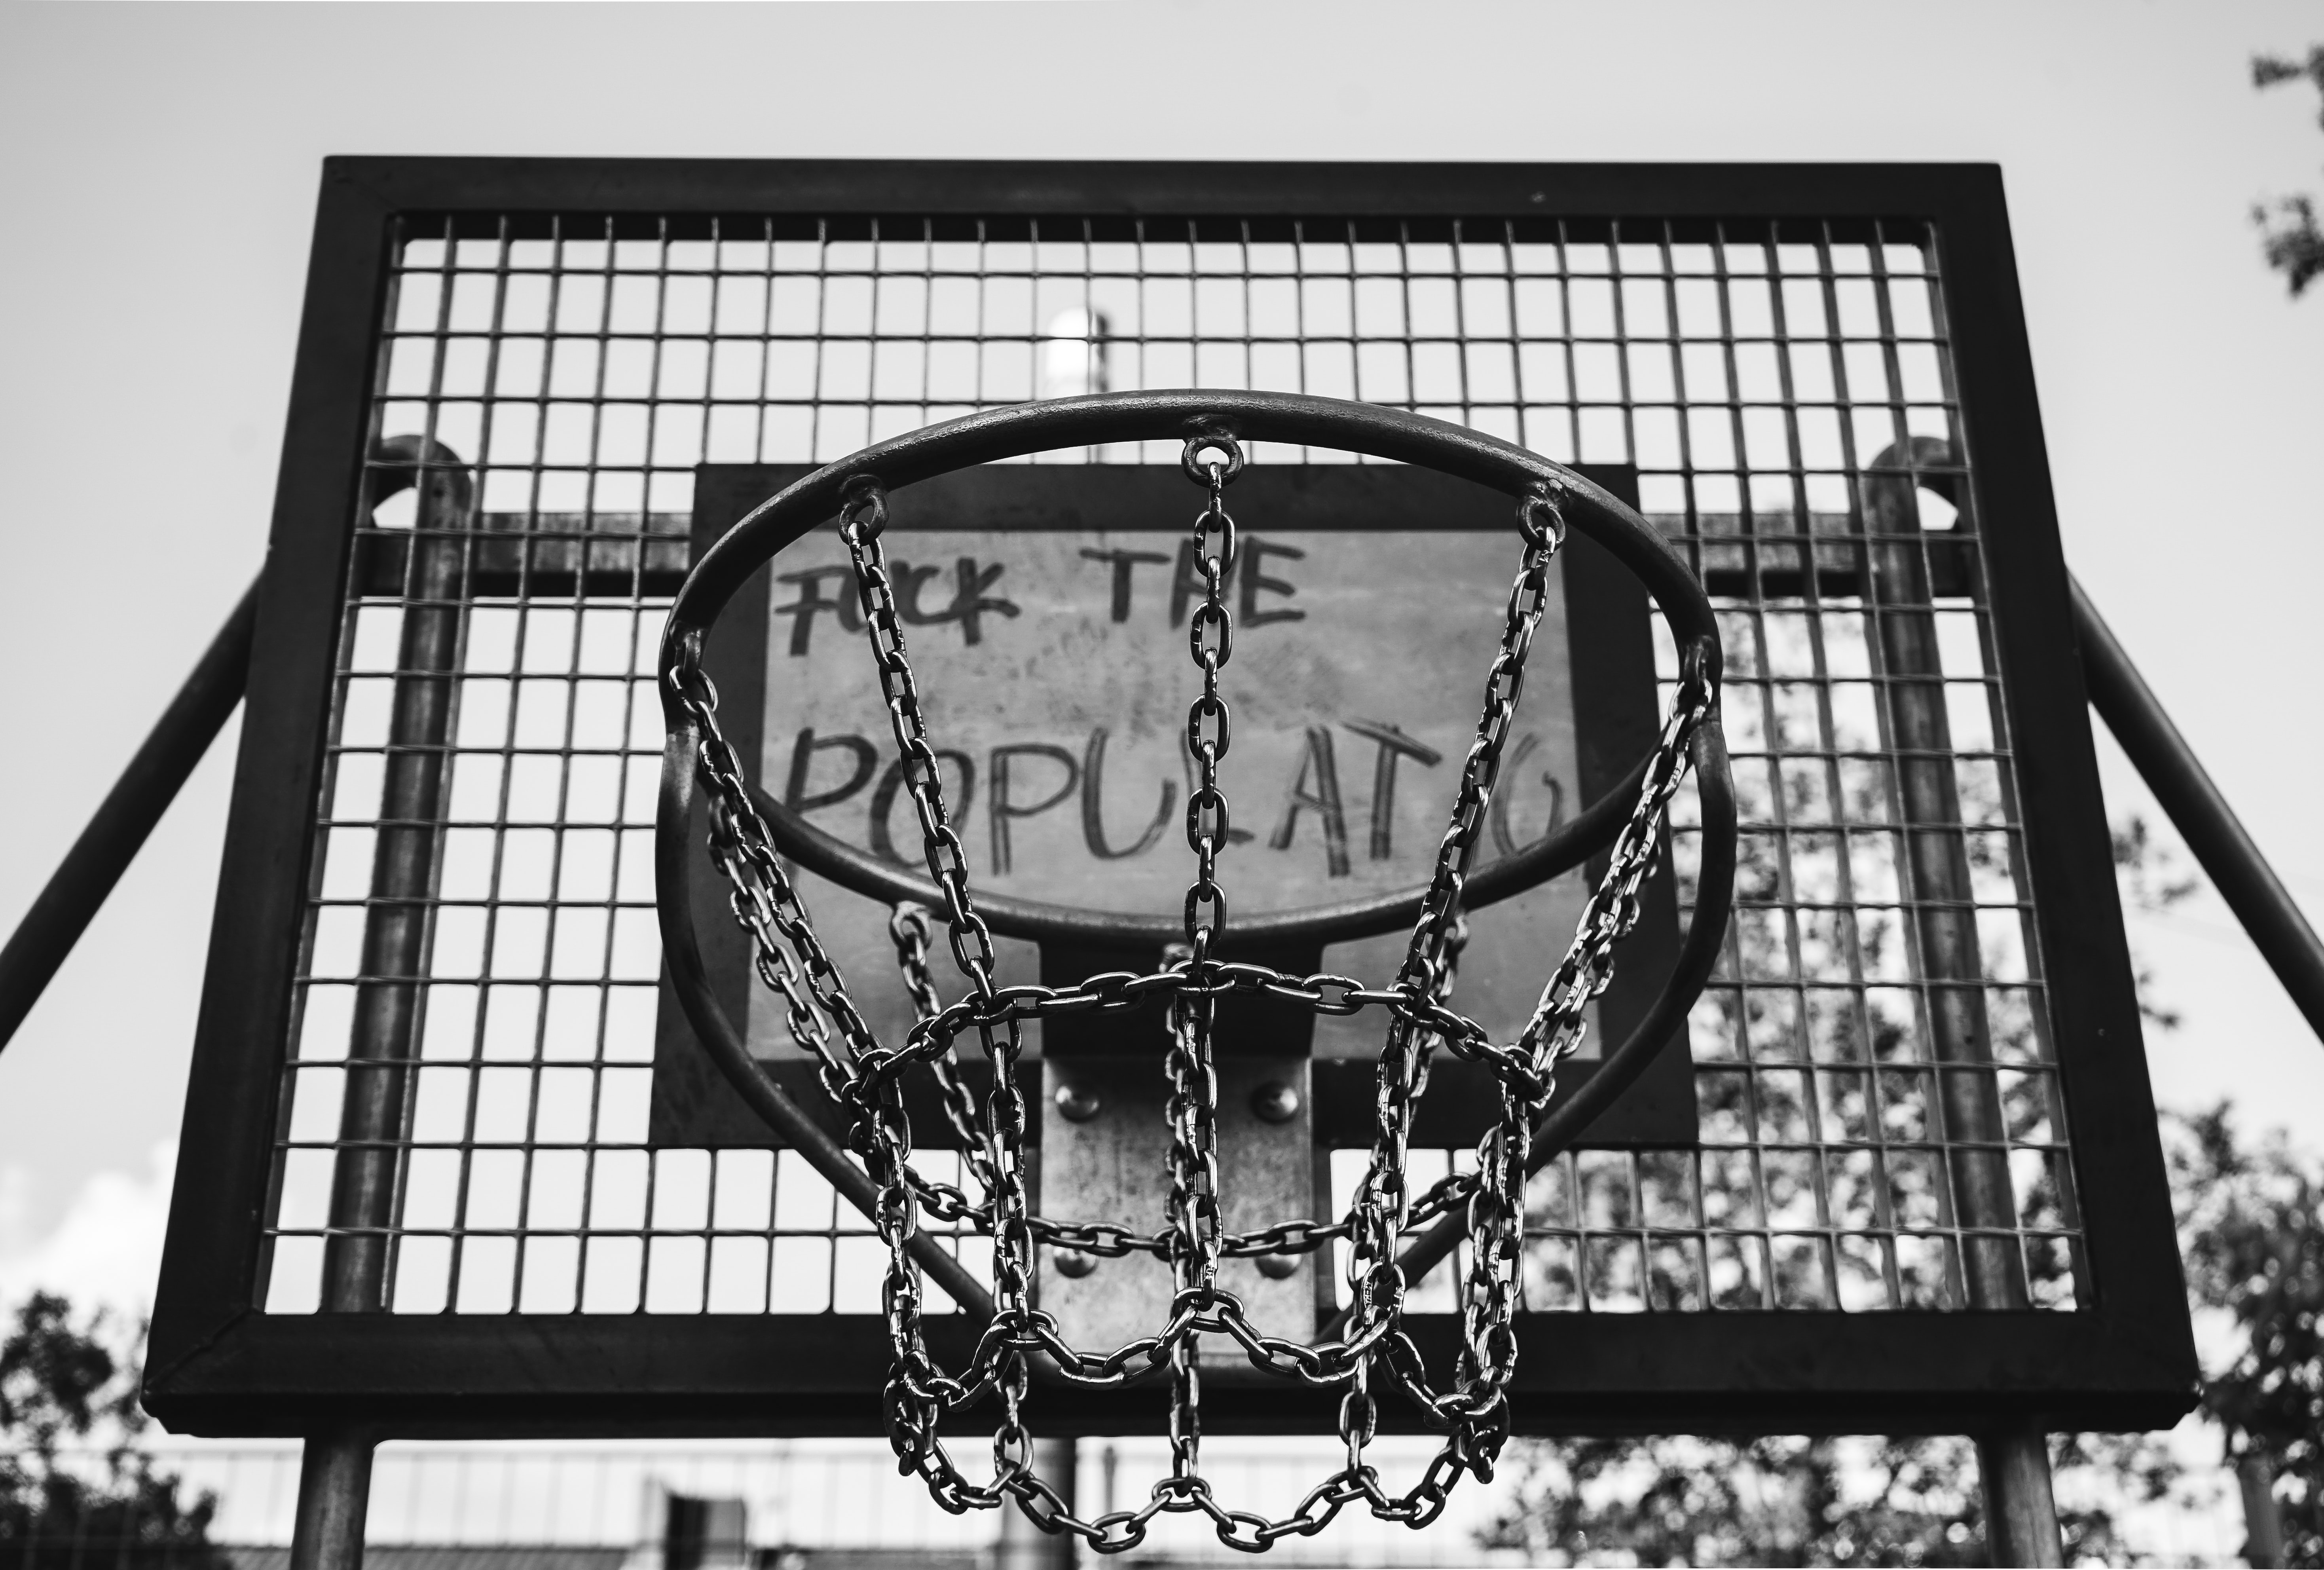 FUCK THE
POPULATIO